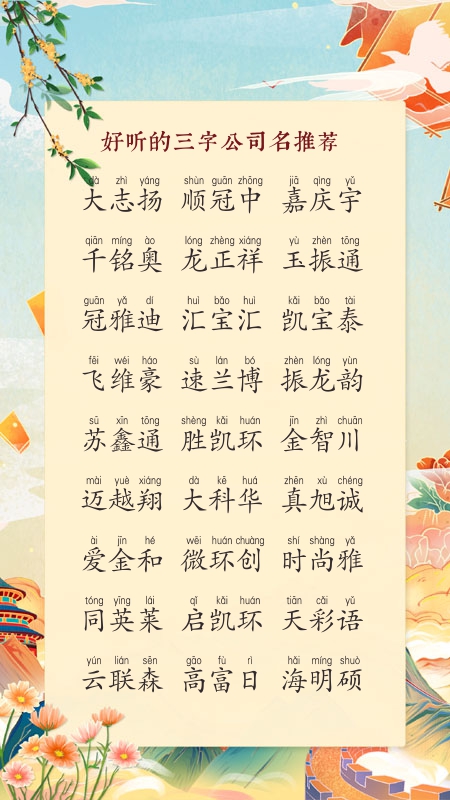 好听的三字公司名推荐
dà zhì yáng shùn guān zhōng jiā qìng yǔ
大志扬 顺冠中 嘉庆宇
qiān míng ào lóng zhèng xiáng yù zhèn tōng
千铭奥 龙正祥 玉振通
guān yǎ dí huì bǎo huì kǎi bǎo tài
冠雅迪 汇宝汇 凯宝泰
fēi wéi háo sù lán bó zhèn lóng yùn
飞维豪 速兰博 振龙韵
sū xīn tōng shèng kǎi huán jīn zhì chuān
苏鑫通 胜凯环 金智川
mài yuè xiáng dà kē huá zhēn xù chéng
迈越翔 大科华 真旭诚
ài jīn hé wēi huán chuàng shí shàng yǎ
爱金和 微环创 时尚雅
tóng yīng lái qǐ kǎi huán tiān cǎi yǔ
同英莱 启凯环 天彩语
yún lián sēn gāo fù rì hǎi míng shuò
云联森 高富日 海明硕